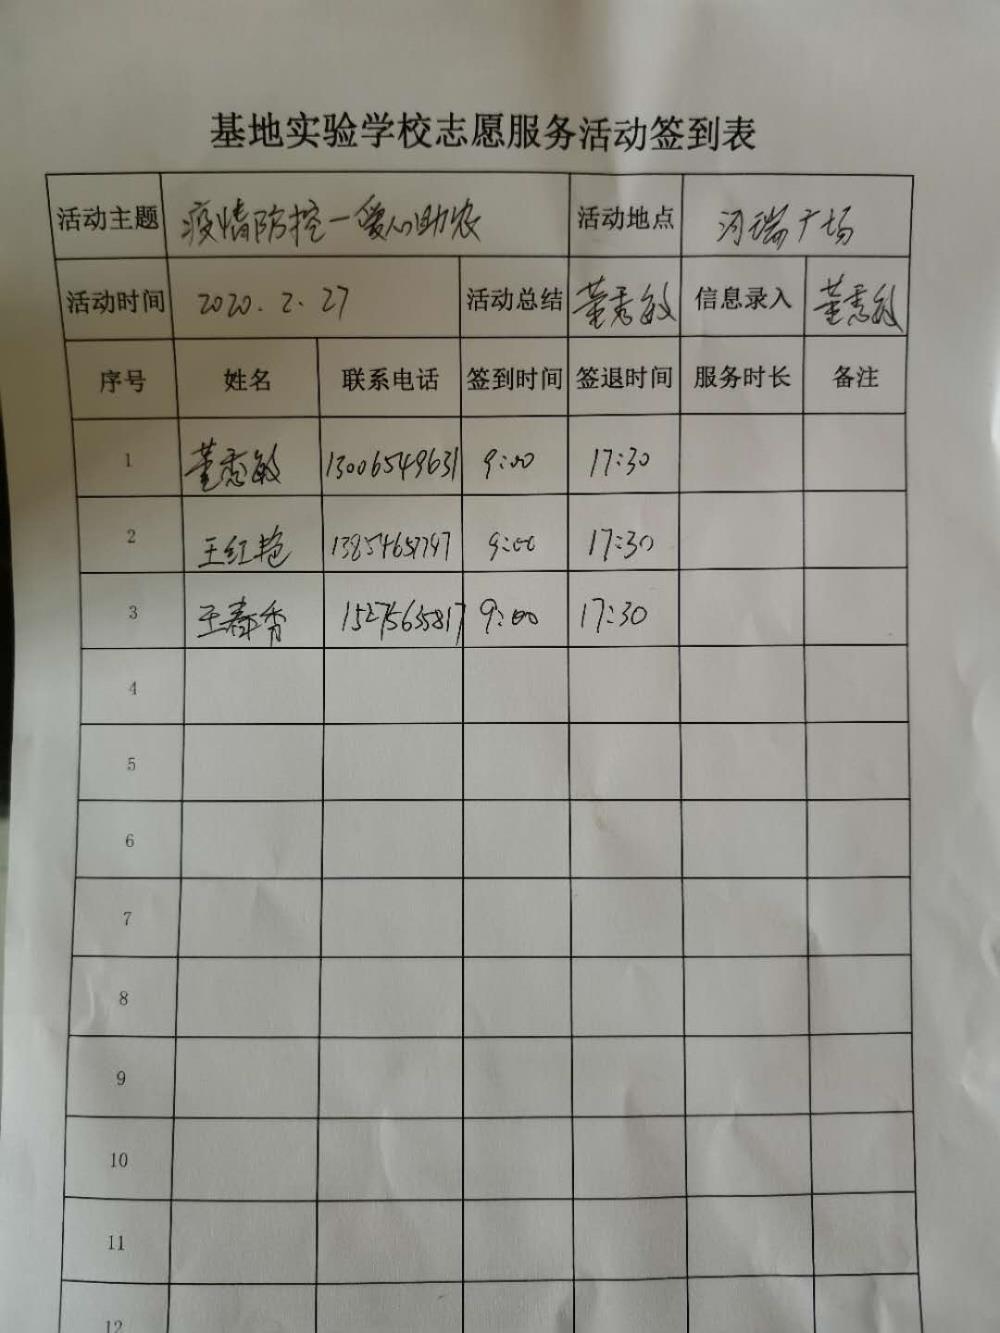 基地实验学校志愿服务活动签到表
活动主题 疫情防控一爱心助农 活动地点 河瑞广场
活动时间 2020.2.27 活动总结 董秀敏 信息录入 董秀敏
序号 姓名 联系电话 签到时间 签退时间 服务时长 备注
1 董秀敏 13006549631 9:00 17:30
2 王红艳 13854657797 9:00 17:30
3 王春香 15275635817 9:00 17:30
4
5
6
7
8
9
10
11
12